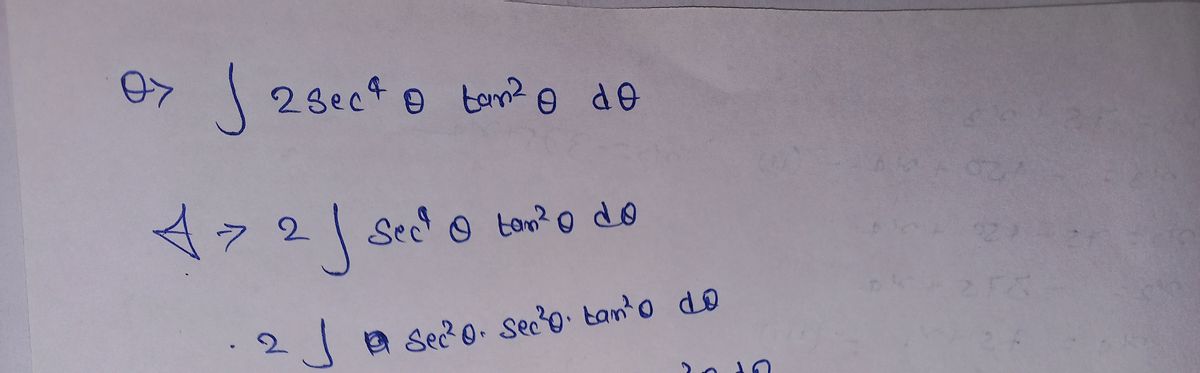 Q> ∫ 2 sec⁴ θ tan² θ dθ
A → 2 ∫ sec⁴ θ tan² θ dθ
. 2 ∫ sec²θ. sec²θ. tan²θ dθ